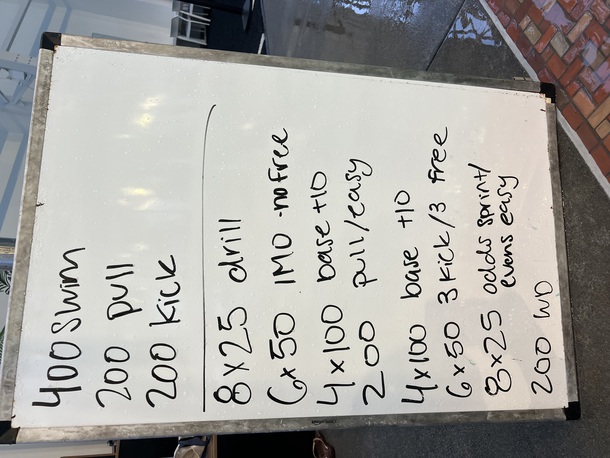 400 Swim
200 pull
200 Kick
8x25 drill
6x50 IMO - no free
4x100 base +10
200 pull/easy
4x100 base +10
6x50 3 Kick/3 free
8x25 odds sprint/
evens easy
200 WD